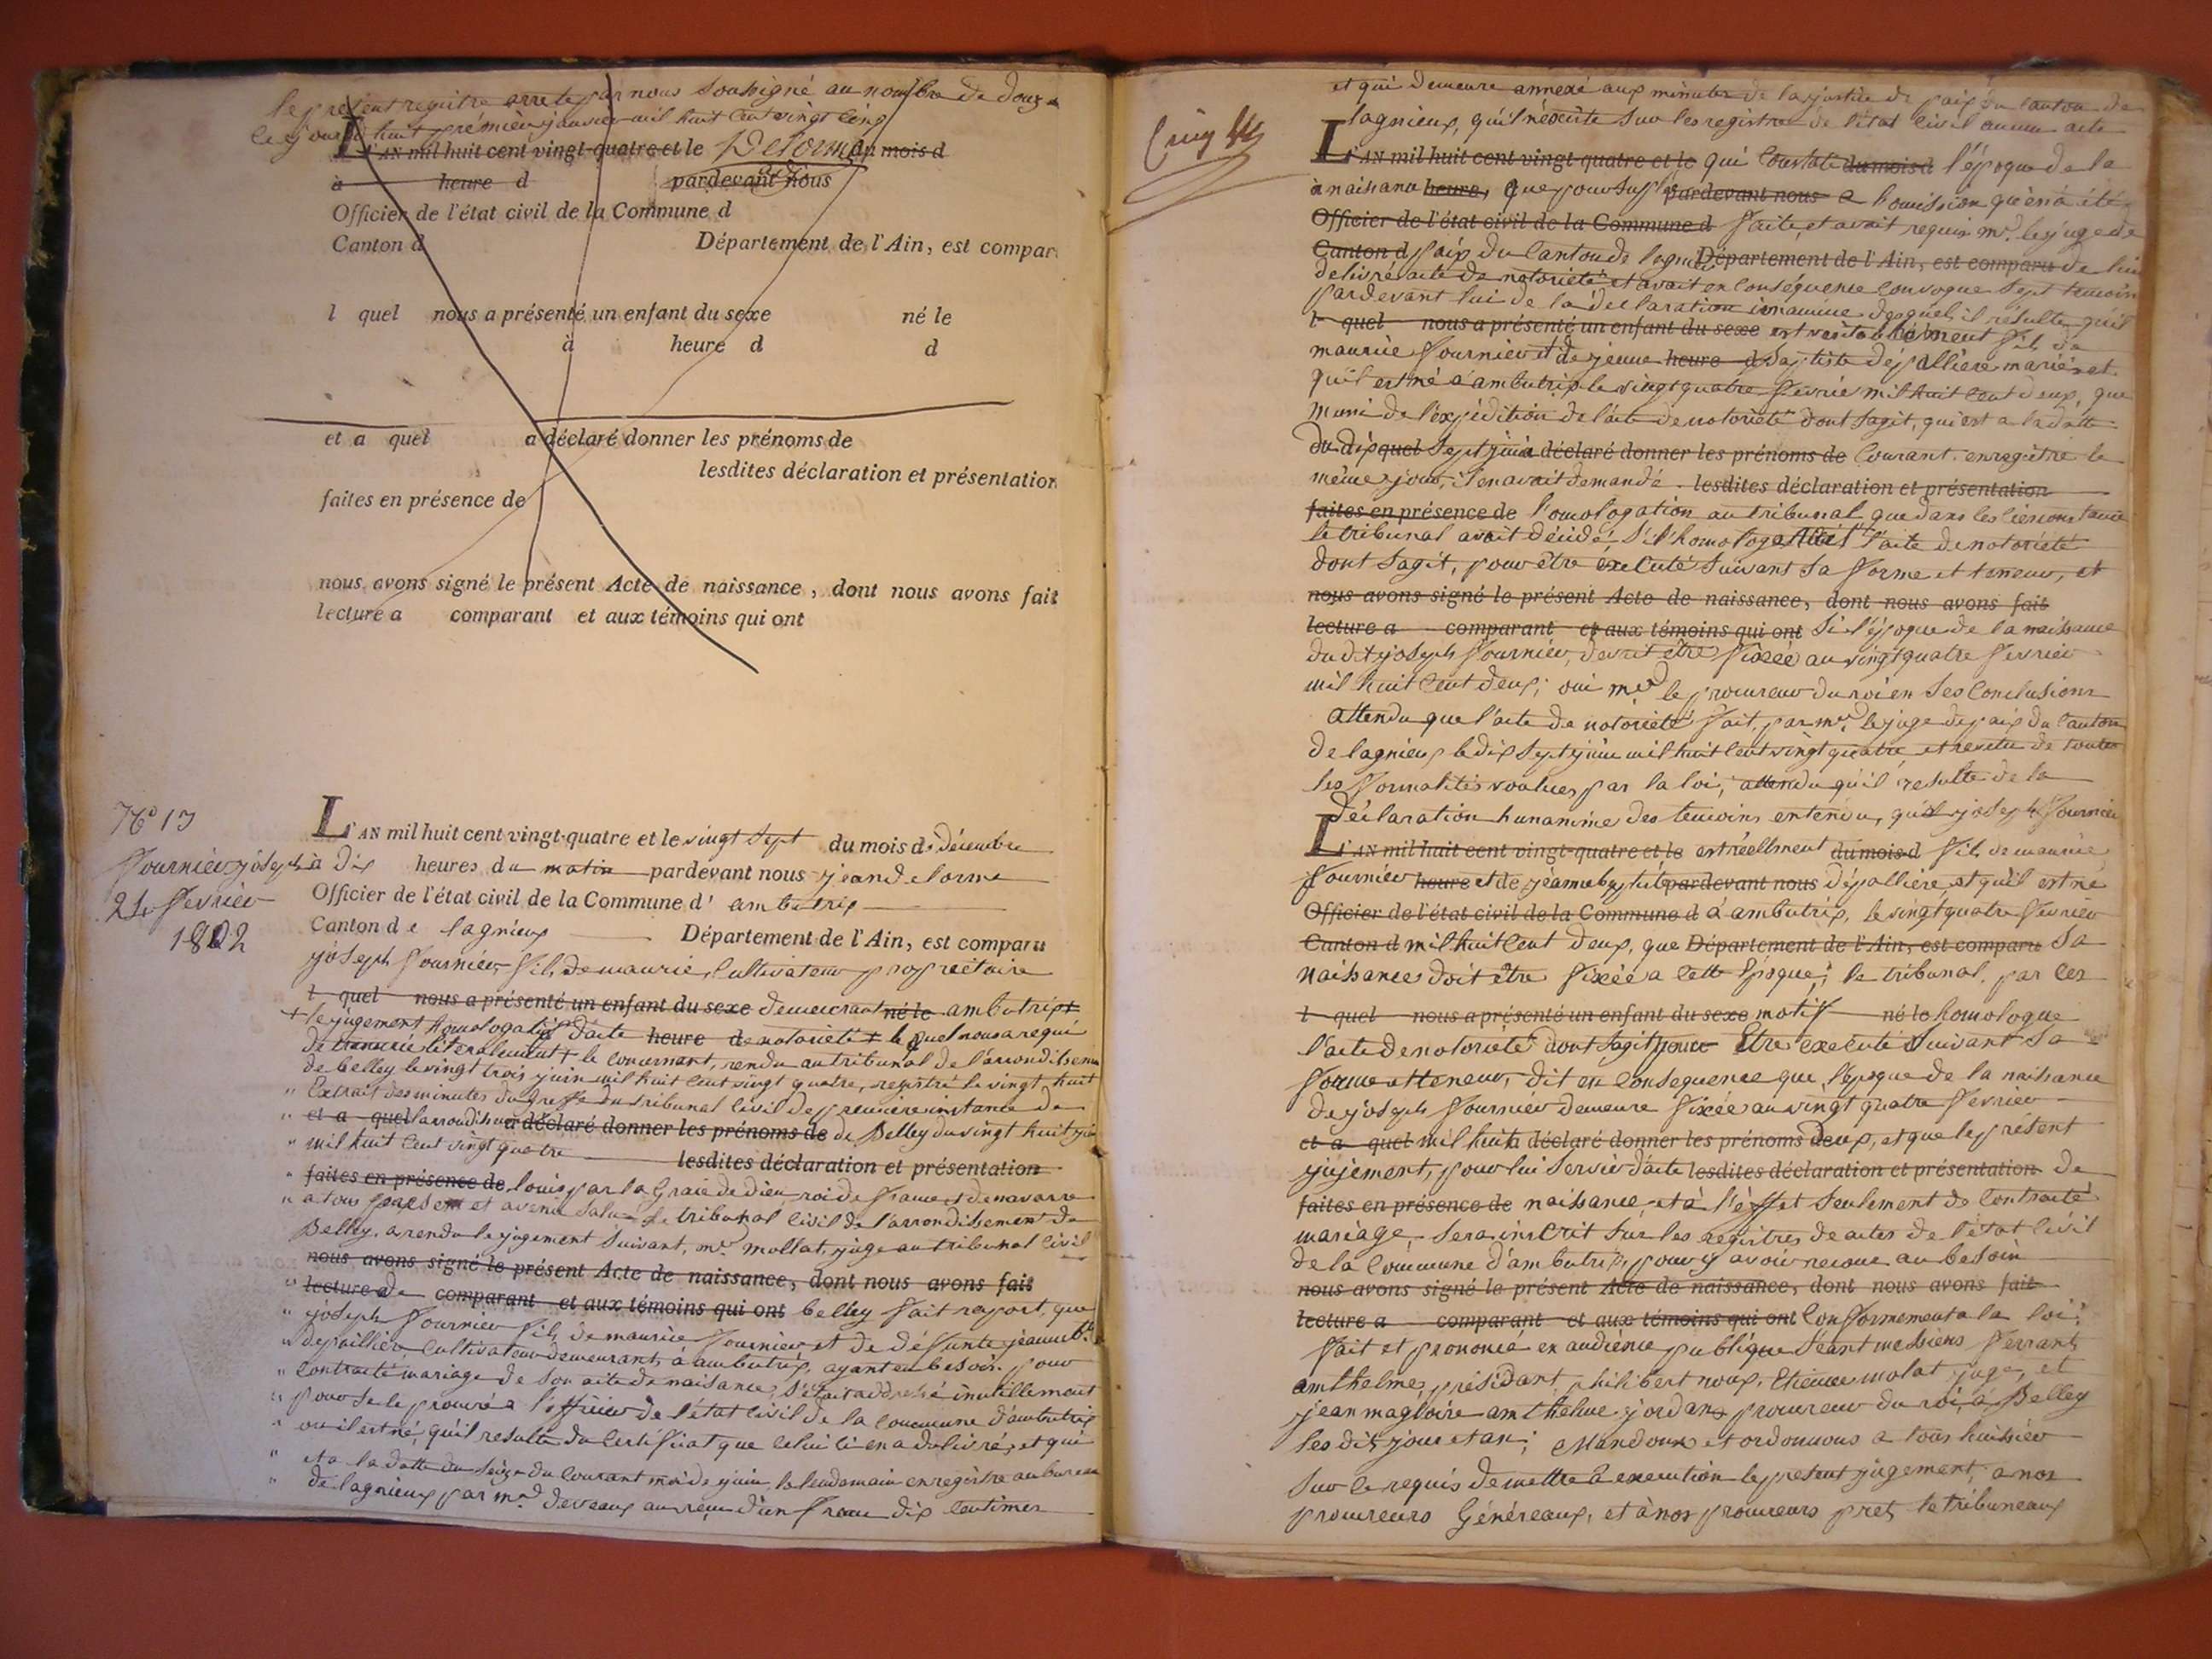 le present registre arreté par nous soussigné au nombre de douze
ce jourd'hui premier janvier mil huit cent vingt cinq
L'AN mil huit cent vingt-quatre et le Delorme du mois d
à heure d pardevant nous
Officier de l'état civil de la Commune d
Canton d Département de l'Ain, est compar
l quel nous a présenté un enfant du sexe né le
à heure d d
et a quel a déclaré donner les prénoms de
lesdites déclaration et présentation
faites en présence de
nous avons signé le présent Acte de naissance, dont nous avons fait
lecture a comparant et aux témoins qui ont
N° 13
fournier joseph
24 fevrier
1802
L'AN mil huit cent vingt-quatre et le vingt sept du mois de décembre
à dix heures du matin pardevant nous jean delorme
Officier de l'état civil de la Commune d' ambutrix
Canton de lagnieux Département de l'Ain, est comparu
joseph fournier fils de maurice, cultivateur proprietaire
l quel nous a présenté un enfant du sexe demeurant né le ambutrix
+ le jugement homologatif d'acte heure de notorieté + lequel nous a requi
de transcrié literalement + le concernant, rendu au tribunal de l'arrondissement
de belley le vingt trois juin mil huit cent vingt quatre, registré le vingt huit
" Extrait des minutes du greffe du tribunal civil de premiere instance de
" et a quel l'arrondissement a déclaré donner les prénoms de de Belley du vingt huit juin
" mil huit cent vingt quatre lesdites déclaration et présentation
" faites en présence de louis par la Grace de dieu roi de france et de navarre
" a tous present et avenir salut le tribunal civil de l'arrondissement de
Belley, a rendu le jugement suivant, mr mollat, juge au tribunal civil
nous avons signé le présent Acte de naissance, dont nous avons fait
" lecture a de comparant et aux témoins qui ont belley fait raport, que
" joseph fournier fils de maurice fournier et de défunte jeanne bte
" depaillier, cultivateur demeurant à ambutrix, ayant eu besoin pour
" contracté mariage de son acte de naisance, s'était addressé inutillement
" pour se le prouvré a l'officier de l'état civil de la commune d'ambutrix
" ou il est né, qu'il resulte du certificat que celui ci en a delivré, et qui
" et a la datte du seize du courant moi de juin, le lendemain enregistre au bureau
" de lagnieux par mr deveaux au reçu d'un franc dix centimes
et qui demeure annexé aux minutes de la justice de paix du canton de
lagnieux, qu'il n'existe sur les registre de l'état civil aucun acte
L'AN mil huit cent vingt-quatre et le qui constate du mois d l'époque de la
à naisance heure, que pour supleer pardevant nous a l'omission qu'en a été
Officier de l'état civil de la Commune d faite, et avait requis mr. le juge de
Canton d paix du canton de lagnieux Département de l'Ain, est comparu de lui
delivré acte de notorieté et avait en conséquence convoque sept temoins
pardevant lui de la déclaration unanime desquels il résulte qu'il
l quel nous a présenté un enfant du sexe est veritablement fils de
maurice fournier et de jeanne heure d baptiste dépallière mariés et
qu'il est né a ambutrix le vingt quatre fevrié mil huit cent deux, que
muni de l'expédition de l'acte de notorieté dont sagit, qui est a la datte
du dix quel sept juin a déclaré donner les prénoms de courant enregistre le
même jour, il en avait demandé lesdites déclaration et présentation
faites en présence de l'omologation au tribunal que dans les circonstance
le tribunal avait décidé s'il homologerait l'acte de notorieté
dont sagit, pour être executé suivant sa forme et teneur, et
nous avons signé le présent Acte de naissance, dont nous avons fait
lecture a comparant et aux témoins qui ont si l'époque de la naissance
du dit joseph fournier, devrait être fixée au vingt quatre fevrier
mil huit cent deux; oui mr le procureur du roi en ses conclusions
attendu que l'acte de notorieté fait par mr. le juge de paix du canton
de lagnieux le dix sept juin mil huit cent vingt quatre, et revetu de toutes
les formalités voulues par la loi; attendu qu'il resulte de la
déclaration hunanime des temoins entendu, que joseph fournier
L'AN mil huit cent vingt-quatre et le est réellment du mois d fils de maurice
fournier heure et de jeanne baptiste pardevant nous dépallière, et qu'il est né
Officier de l'état civil de la Commune d à ambutrix, le vingt quatre fevrier
Canton d mil huit cent deux, que Département de l'Ain, est comparu sa
naissance doit être fixée a cette époque; le tribunal par ces
l quel nous a présenté un enfant du sexe motif né le homologue
l'acte de notorieté dont sagit pour Etre executé suivant sa
forme et teneur, dit en consequence que l'époque de la naissance
de joseph fournier demeure fixée au vingt quatre fevrier
et a quel mil huit a déclaré donner les prénoms de deux, et que le présent
jujement, pour lui servir d'acte lesdites déclaration et présentation de
faites en présence de naissance, et à l'éffet seulement de contracté
mariage sera inscrit sur les registres de actes de l'état civil
de la commune d'ambutrix, pour y avoir recoure au besoin
nous avons signé le présent Acte de naissance, dont nous avons fait
lecture a comparant et aux témoins qui ont conformement a la loi;
fait et prononcé en audience publique séant messiens ferrant
amthelme présidant, philibert roux, Etienne molat juge, et
jean magloire amthelme jordan procureur du roi, à Belley
les dits jour et an; Mandons et ordonnons a tous huissier
sur ce requis de mettre à execution le present jugement, a nos
procureurs Généreaux, et à nos procureurs pret le tribuneaux